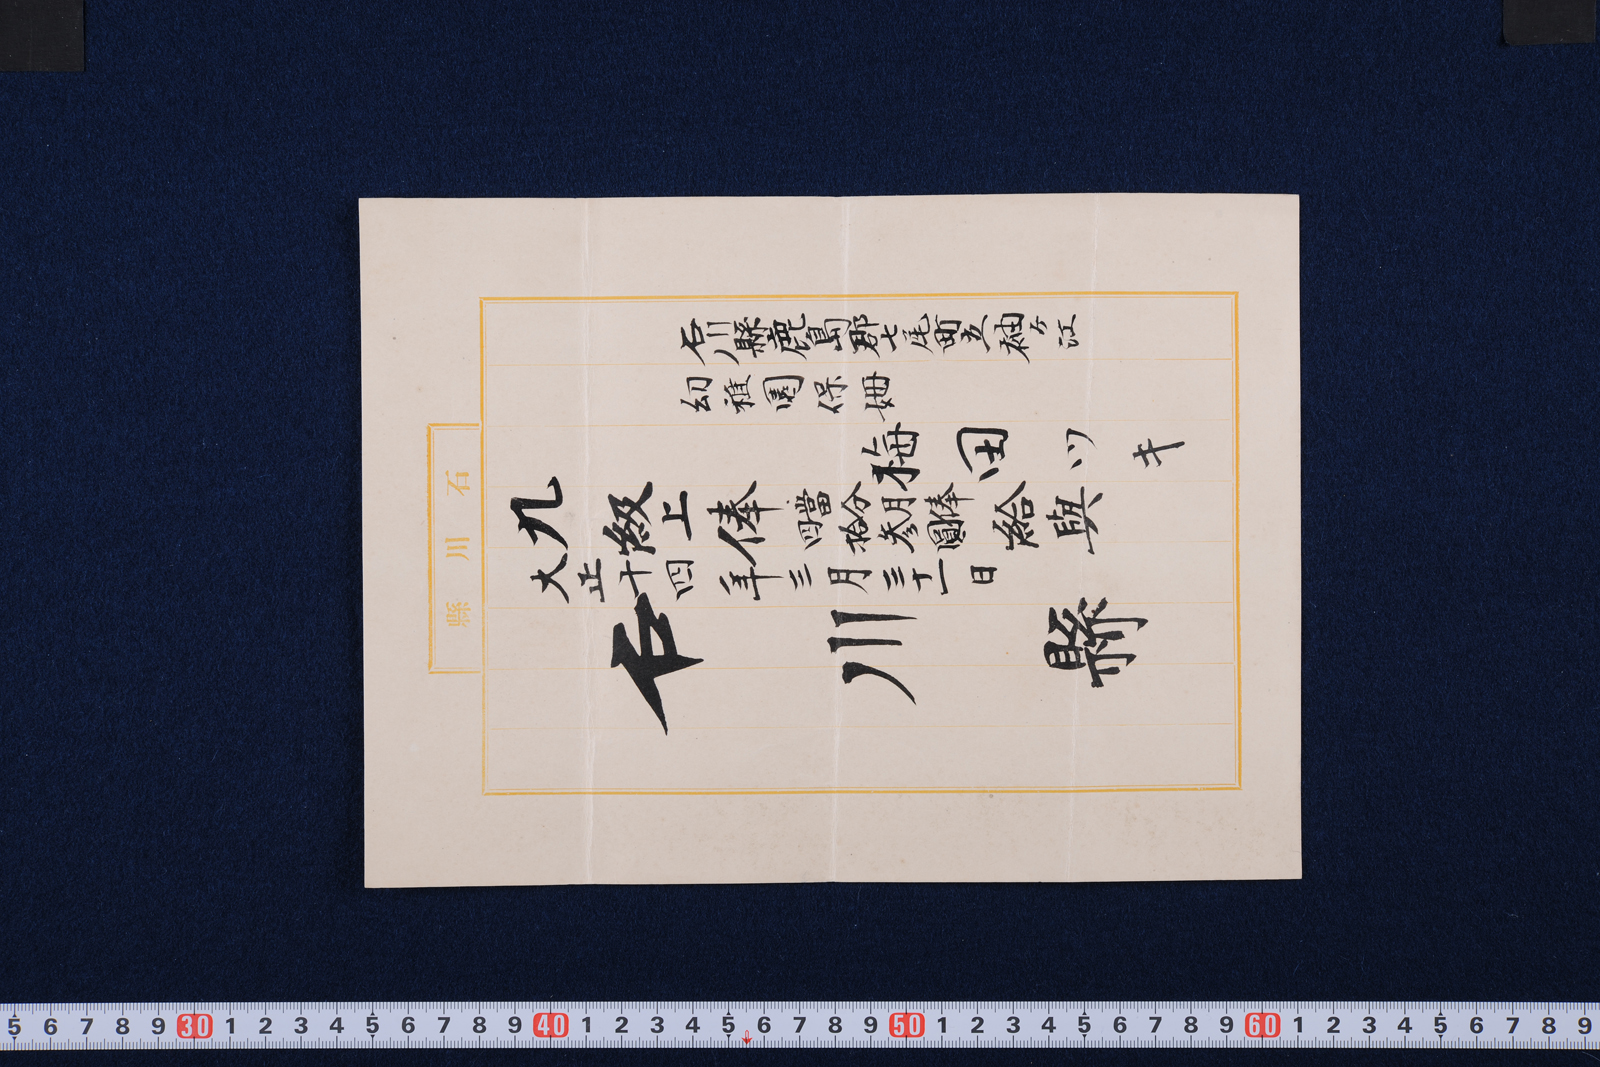 石川縣鹿島郡七尾町立袖ヶ江
幼稚園保姆
梅田ツキ
九級上俸
四當
拾分
参月
圓俸
給與
大正十四年三月三十一日
石川縣
石川縣
5 6 7 8 9 30 1 2 3 4 5 6 7 8 9 40 1 2 3 4 5 6 7 8 9 50 1 2 3 4 5 6 7 8 9 60 1 2 3 4 5 6 7 8 9